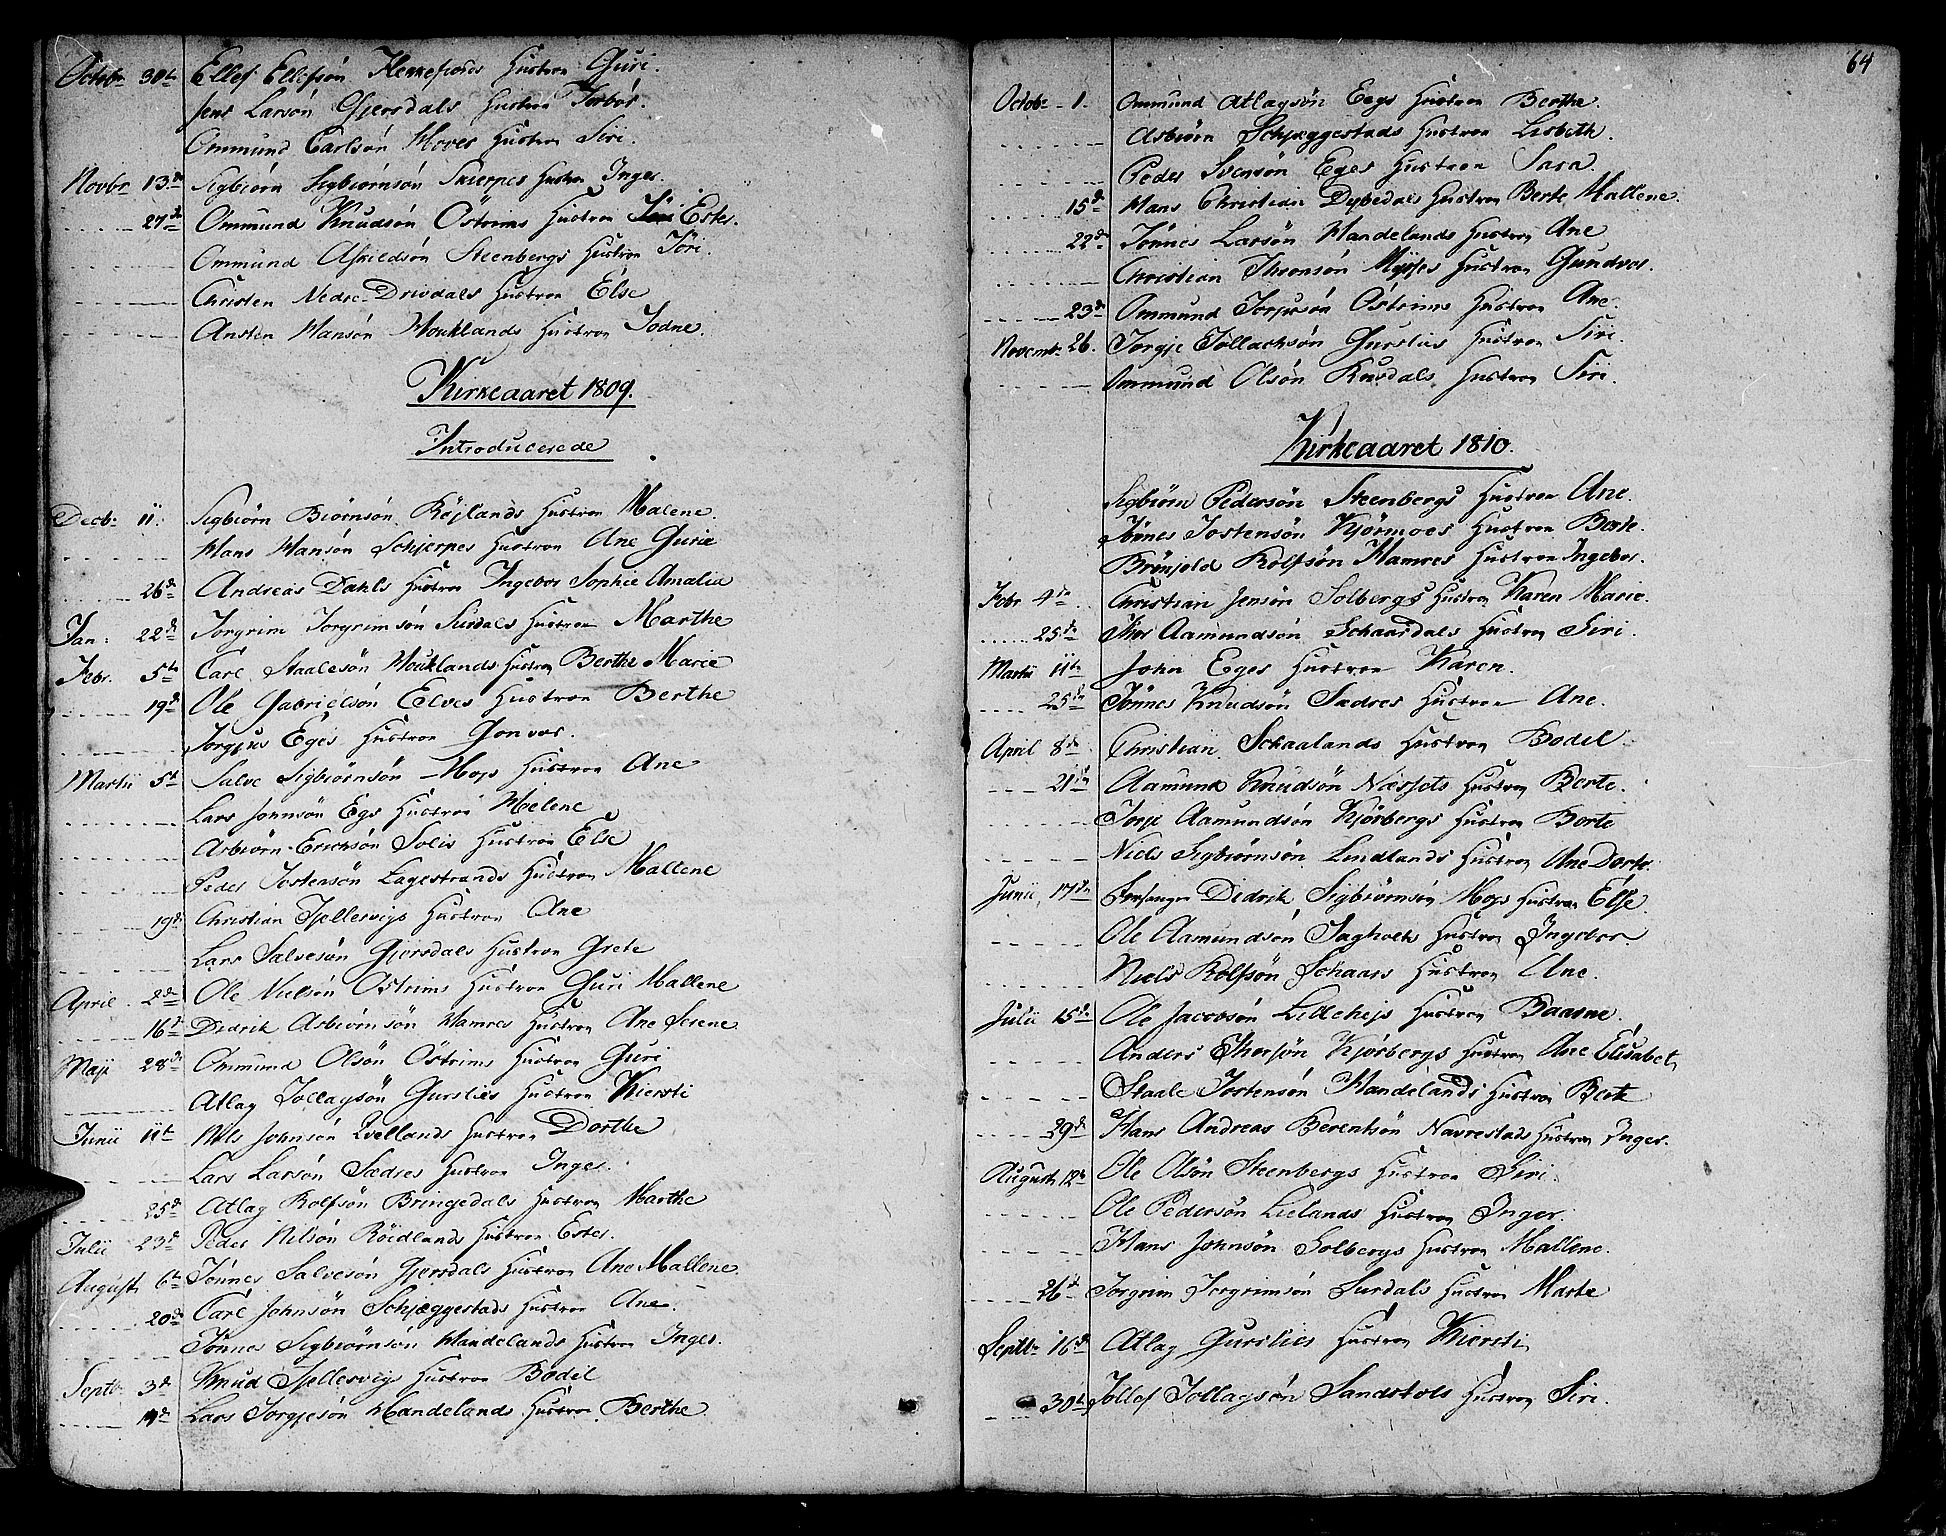 Octobr 30te Ellef Ellefsøn Hustroe Guri.
Jens Larsøn Gjersdals Hustroe Torbør.
Ommund Carlsøn Moves Hustroe Siri.
Novbr 13de Sigbiørn Sigbiørnsøn Skierpes Hustroe Inger.
27de Ommund Knudsøn Östrims Hustroe Ester.
Ommund Askieldsøn Steenbergs Hustroe Töri.
Christen Nedre-Drivdals Hustroe Else
Ansten Hansøn Houklands Hustroe Todne.
Kirkeaaret 1809.
Introducerede
Decbr: 11. Sigbiørn Biørnsøn Röjlands Hustroe Malene.
Hans Hansøn Schjerpes Hustroe Ane Gurie
26de Andreas Dahls Hustroe Ingebor Sophie Amalia
Jan: 22de Torgrim Torgrimsøn Surdals Hustroe Marthe
Febr. 5te Carl Staalesøn Houklands Hustroe Berthe Marie
19de Ole Gabrielsøn Eelves Hustroe Berthe
Torgjus Eges Hustroe Gonvor.
Martii 5te Salve Sigbiørnsøn Mops Hustroe Ane
Lars Johnsøn Egs Hustroe Helene
Asbiørn Erichsøn Solis Hustroe Else
Peder Tostensøn Lagestrands Hustroe Mallene
19de Christian Tjellesvigs Hustroe Ane
Lars Salvesøn Gjersdals Hustroe Grete
April 2de Ole Nielsøn Östrims Hustroe Guri Mallene
16de Didrik Asbiørnsøn Hamres Hustroe Ane Serene
Maji 28de Ommund Olsøn Östrims Hustroe Guri
Atlag Tollagsøn Gurslies Hustroe Kiersti
Junii 11te Nils Johnsøn Hustroe Dorthe
Lars Larsøn Sædres Hustroe Inger.
25de Atlag Rolfsøn Bringedals Hustroe Marthe
Julii 23de Peder Nilsøn Röidlands Hustroe Ester.
August 6te Tönnes Salvesøn Gjersdals Hustroe Ane Mallene.
20de Carl Johnsøn Schjæggestads Hustroe Ane.
Tönnes Sigbiørnsøn Handelands Hustroe Inger.
Septbr. 3de Knud Tjellesvigs Hustroe Bodil
Lars Torgjesøn Handelands Hustroe Berthe.
64
Octobr. 1. Ommund Atlagsøn Eegs Hustroe Berthe.
Asbiørn Schjæggestads Hustroe Lisbeth.
Peder Svensøn Eges Hustroe Sara.
15de Hans Christian Dybedals Hustroe Berte Mallene.
22de Tönnes Larsøn Handelands Hustroe Ane
Christian Thronsøn Hustroe Gundvor.
23de Ommund Torjusøn Östrims Hustroe Ane
Novembr. 26. Torgje Tollachsøn Gurslies Hustroe Siri.
Ommund Olsøn Rusdals Hustroe Siri.
Kirkeaaret 1810.
Sigbiørn Pedersøn Steenbergs Hustroe Ane.
Tönnes Tostensøn Kjörmoes Hustroe Berte.
Brönjeld Rolfsøn Hamres Hustroe Ingebor.
Febr. 4de Christian Jensøn Solbergs Hustroe Karen Marie.
25de Thor Aamundsøn Schaardals Hustroe Siri.
Martii 11te John Eges Hustroe Karen.
25de Tönnes Knudsøn Sædres Hustroe Ane.
April 8de Christian Schaalands Hustroe Bodel
21de Aamund Knudsøn Næsjots Hustroe Berte.
Torje Aamundsøn Kjörbergs Hustroe Borte
Niels Sigbiørnsøn Lindlands Hustroe Ane Dorte.
Junii 17de Forsanger Didrik Sigbiørnsøn Mops Hustroe Else.
Ole Aamundsøn Sagholts Hustroe Ingebor.
Niels Rolfsøn Schaars Hustroe Ane.
Julii 15de Ole Jacobsøn Lillehejs Hustroe Baarne.
Anders Thorsøn Kjörbergs Hustroe Ane Elisabet
Staale Tostensøn Handelands Hustroe Berte
29de Hans Andreas Berentsøn Navrestads Hustroe Inger.
August 12te Ole Olsøn Steenbergs Hustroe Siri.
Ole Pedersøn Lielands Hustroe Inger.
Hans Johnsøn Solbergs Hustroe Mallene.
26de Torgrim Torgrimsøn Surdals Hustroe Marte
Septbr 16de Atlag Gurslies Hustroe Kiersti
30te Tollef Tollagsøn Sandstols Hustroe Siri.